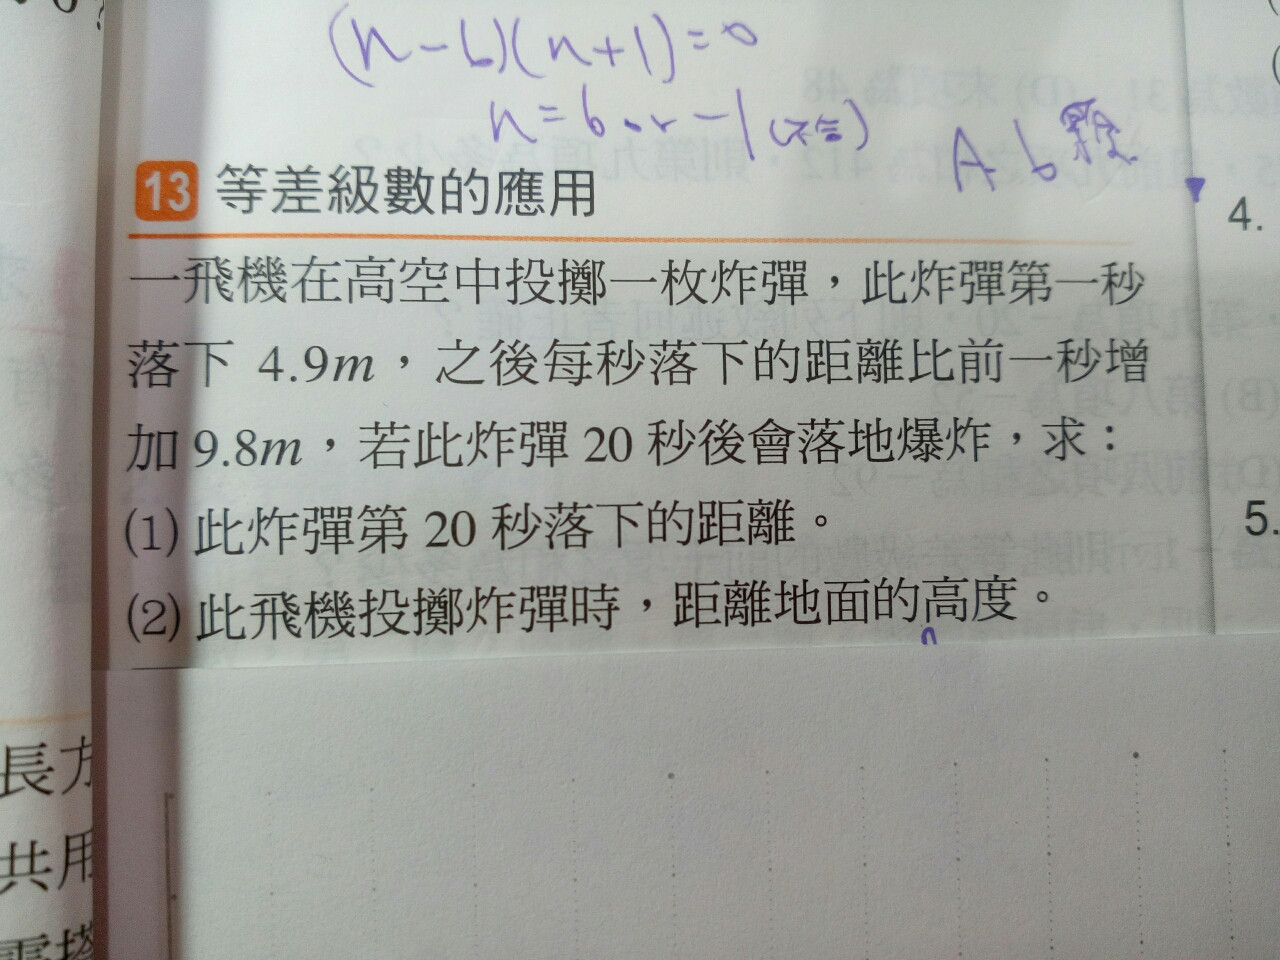 (n-6)(n+1)=0
n=6 or -1(不合)
A 6
13 等差級數的應用
一飛機在高空中投擲一枚炸彈，此炸彈第一秒
落下 4.9m，之後每秒落下的距離比前一秒增
加 9.8m，若此炸彈 20 秒後會落地爆炸，求：
(1) 此炸彈第 20 秒落下的距離。
(2) 此飛機投擲炸彈時，距離地面的高度。
4.
5.
長方
共用